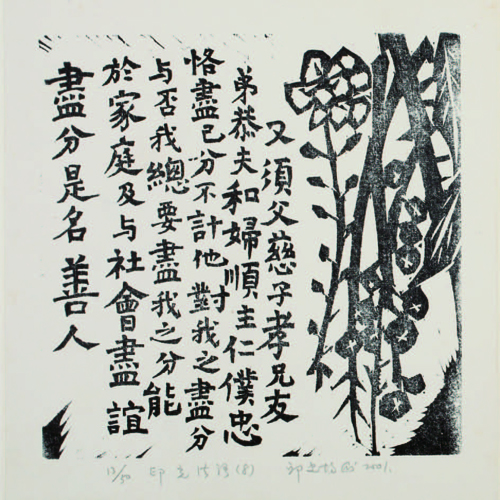 又須父慈子孝兄友
弟恭夫和婦順主仁僕忠
恪盡己分不計他對我之盡分
与否我總要盡我之分能
於家庭及与社會盡誼
盡分是名善人
13/50 印光法語(8) 2001.